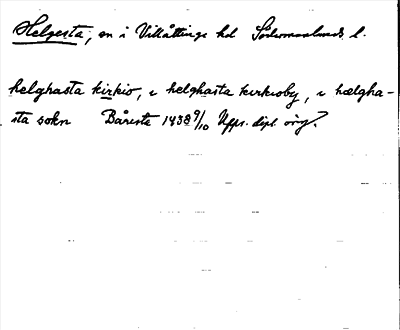 Helgesta, sn i Villåttinge hd Södermanlands l.
helghasta kirkio, i helghasta kirkioby, i hælgha-
sta sokn Båresta 1438 9/10 Upps. dipl. orig?